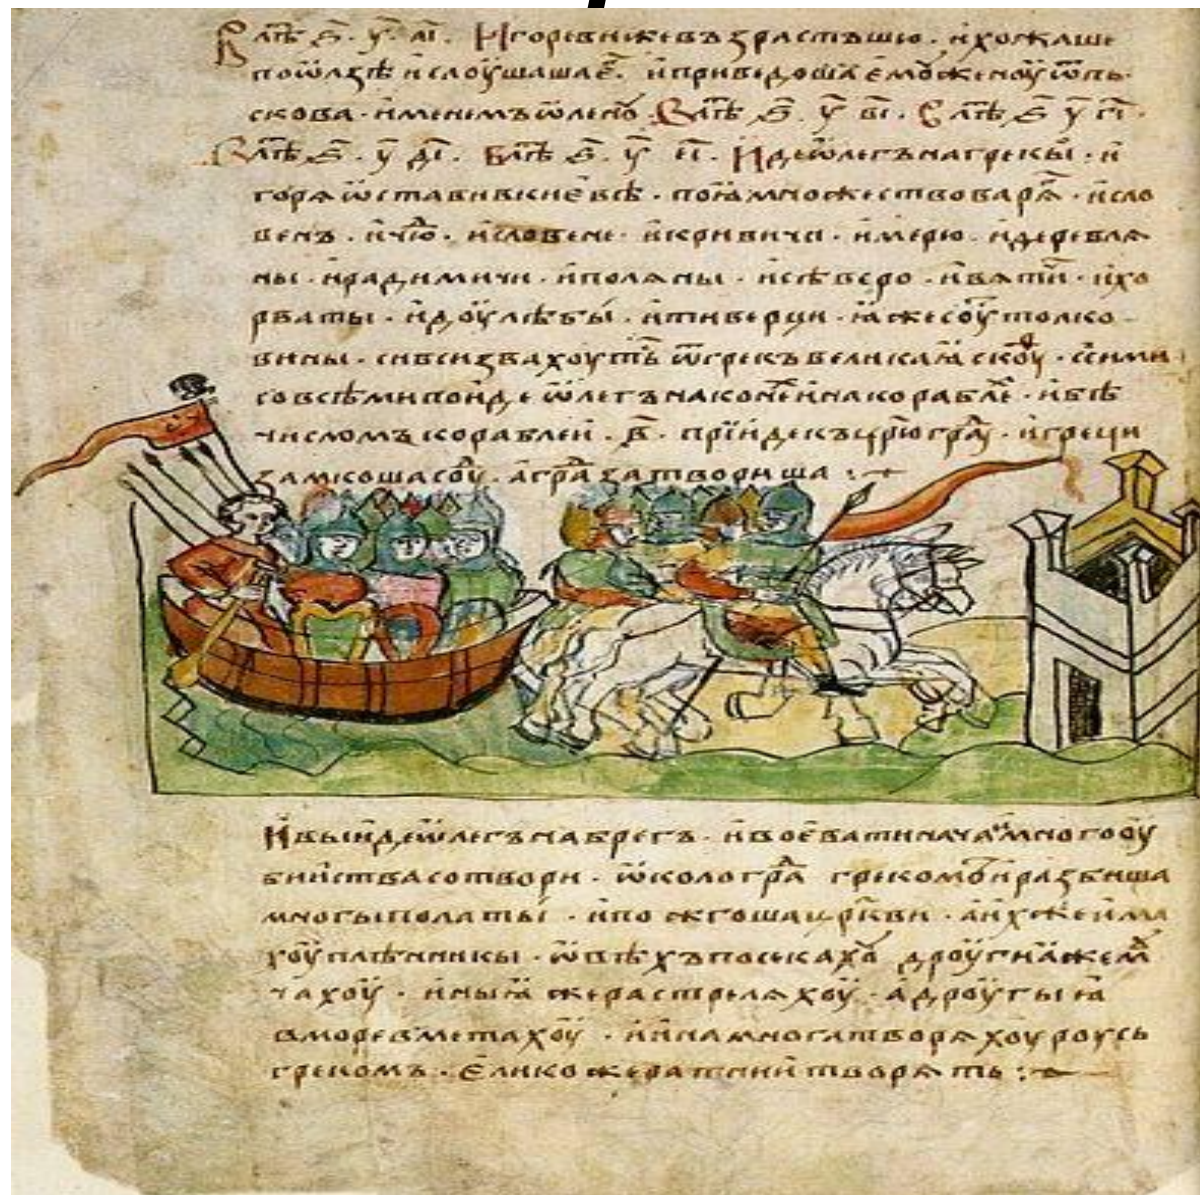 В лѣⷮ ҂ѕ҃. у҃. аі҃. Игореви же възрастъшю. и хожаше
по ѿлзѣ и слоушаша еⷢ. и приведоша емоу женоу ѿ пь
скова. именемъ ѿленоу. В лѣⷮ ҂ѕ҃. у҃ ві҃. В лѣⷮ ҂ѕ҃ у҃ гі҃.
В лѣⷮ ҂ѕ҃. у҃ ді҃. В лѣⷮ ҂ѕ҃. у҃ еі҃. Иде ѿлегъ на грекы. и
горя ѡставив киеве. поя множество варяⷢ. и сло
венъ. и чюⷣ. и словене. и кривичи. и мерю. и деревля
ны. и радимичи. и поляны. и сѣверо. и вятиⷱ. и хо
рваты. и доулѣбы. и тиверци. яже соуⷮ толко
вины. си вси звахоуть ѿ грекъ великая скоуⷴ. с сими
со всѣми поиде ѿлегъ на конеⷯ и на кораблеⷯ. и бѣ
числомъ кораблеи. в҃. прииде къ црюграⷣ. и греци
замкоша соуⷣ. а граⷣ затвориша :
И выиде ѿлегъ на брегъ. и воевати нача. и много оу
бииства сотвори. ѡколо граⷣ грекомъ. и разбиша
многы полаты. и пожгоша црⷪкви. а ихже има
хоу плѣнникы. ѡвѣхъ посѣкахоу дроугия же моу
чахоу. иныя же растреляхоу. а дроугыя
в море вметахоу. и ина многа творяхоу роусь
грекомъ. елико же ратнии творять :